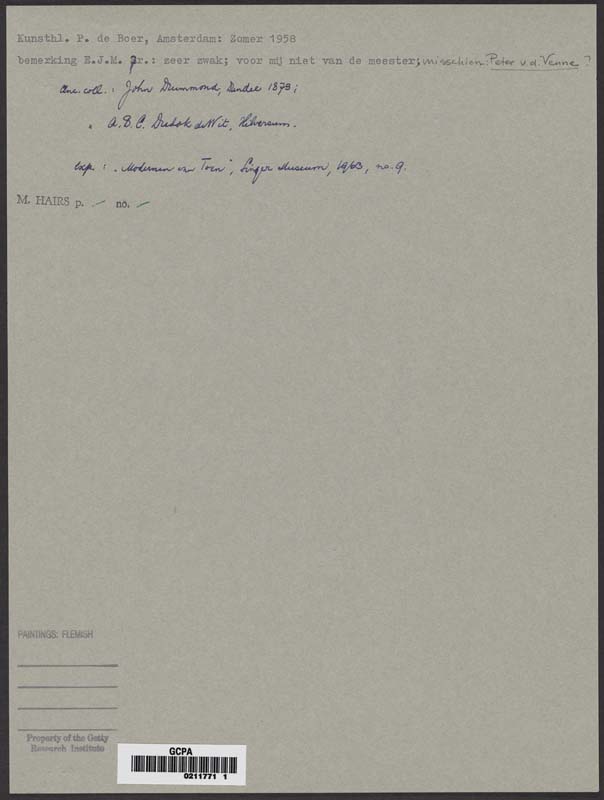 Kunsthl. P. de Boer, Amsterdam: Zomer 1958
bemerking E.J.M. Jr.: zeer zwak; voor mij niet van de meester; misschien: Peter v.d. Venne ?
Anc. coll. : John Drummond, Dundee 1873;
" A.B.C. Dudok de Wit, Hilversum.
Exp. : "Modernen van Toen", Singer Museum, 1963, no. 9.
M. HAIRS p. — no. —
PAINTINGS: FLEMISH
Property of the Getty
Research Institute
GCPA
0211771 1